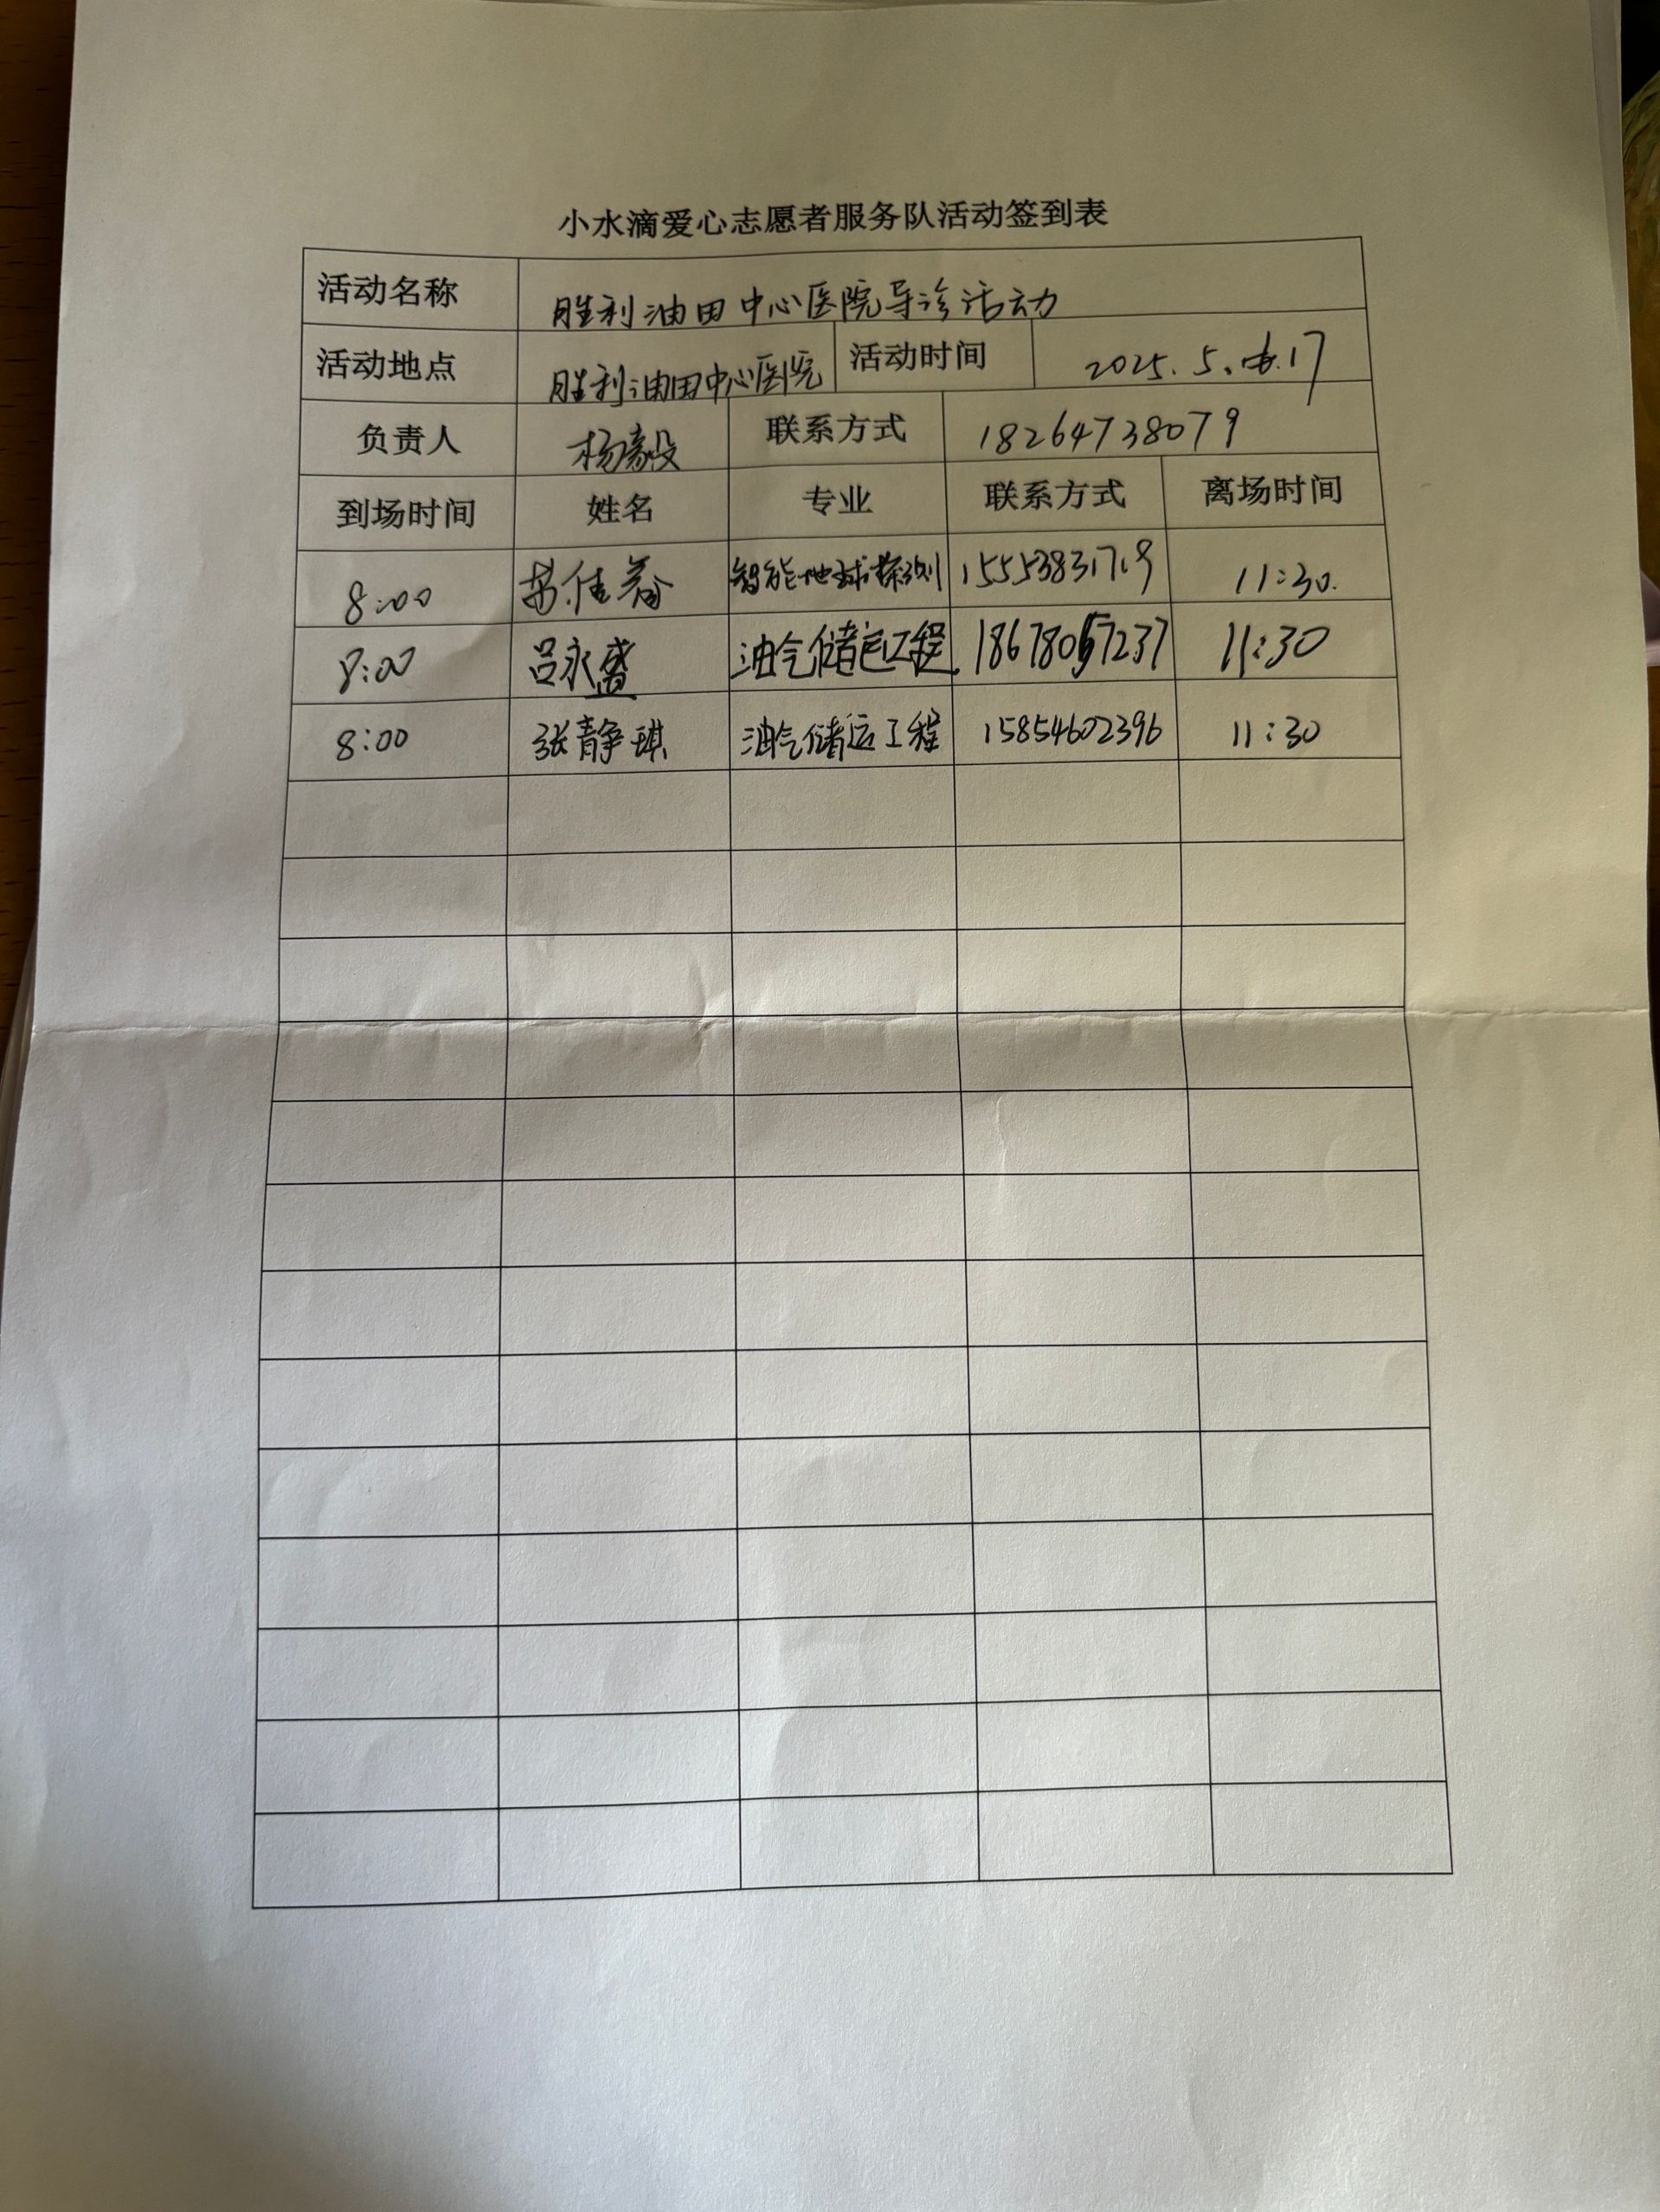 小水滴爱心志愿者服务队活动签到表
活动名称 胜利油田中心医院导诊活动
活动地点 胜利油田中心医院 活动时间 2025.5.17
负责人 杨毅 联系方式 18264738079
到场时间 姓名 专业 联系方式 离场时间
8:00 苏佳 智能地球探测 15553831719 11:30.
8:00 吕永盛 油气储运工程 18678057237 11:30
8:00 张静琪 油气储运工程 15854602396 11:30